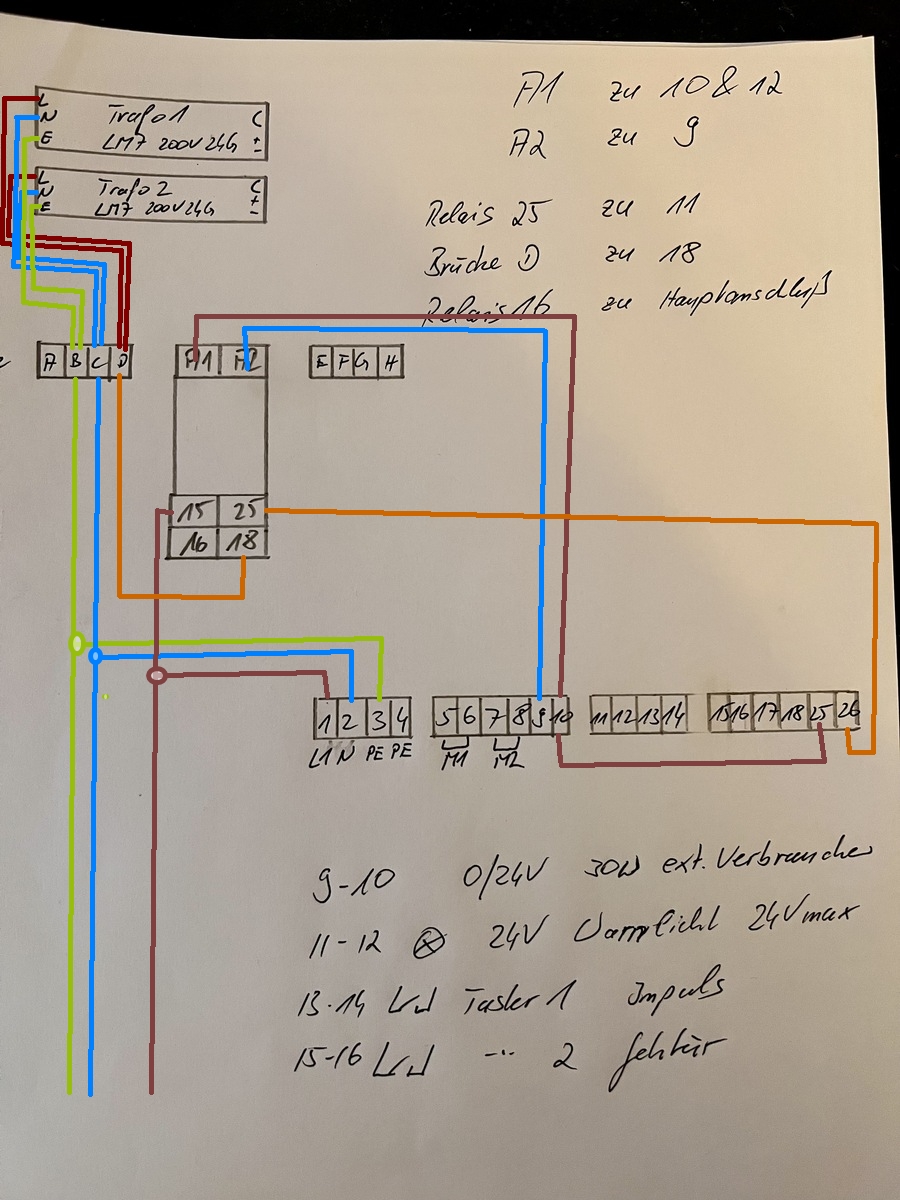 A1 zu 10 & 12
A2 zu 9
Relais 25 zu 11
Brücke D zu 18
Relais 16 zu Hauptanschluß
L
N Trafo 1 C
E LM7 200V 24G ±
L
N Trafo 2 C
E LM7 200V 24G ±
A B C D
A1 A2
E F G H
15 25
16 18
1 2 3 4 5 6 7 8 9 10 11 12 13 14 15 16 17 18 25 26
L1 N PE PE M1 M2
9-10 0/24V 30W ext. Verbraucher
11-12 24V Warnlicht 24Vmax
13-14 Taster 1 Impuls
15-16 -"- 2 Gehtür